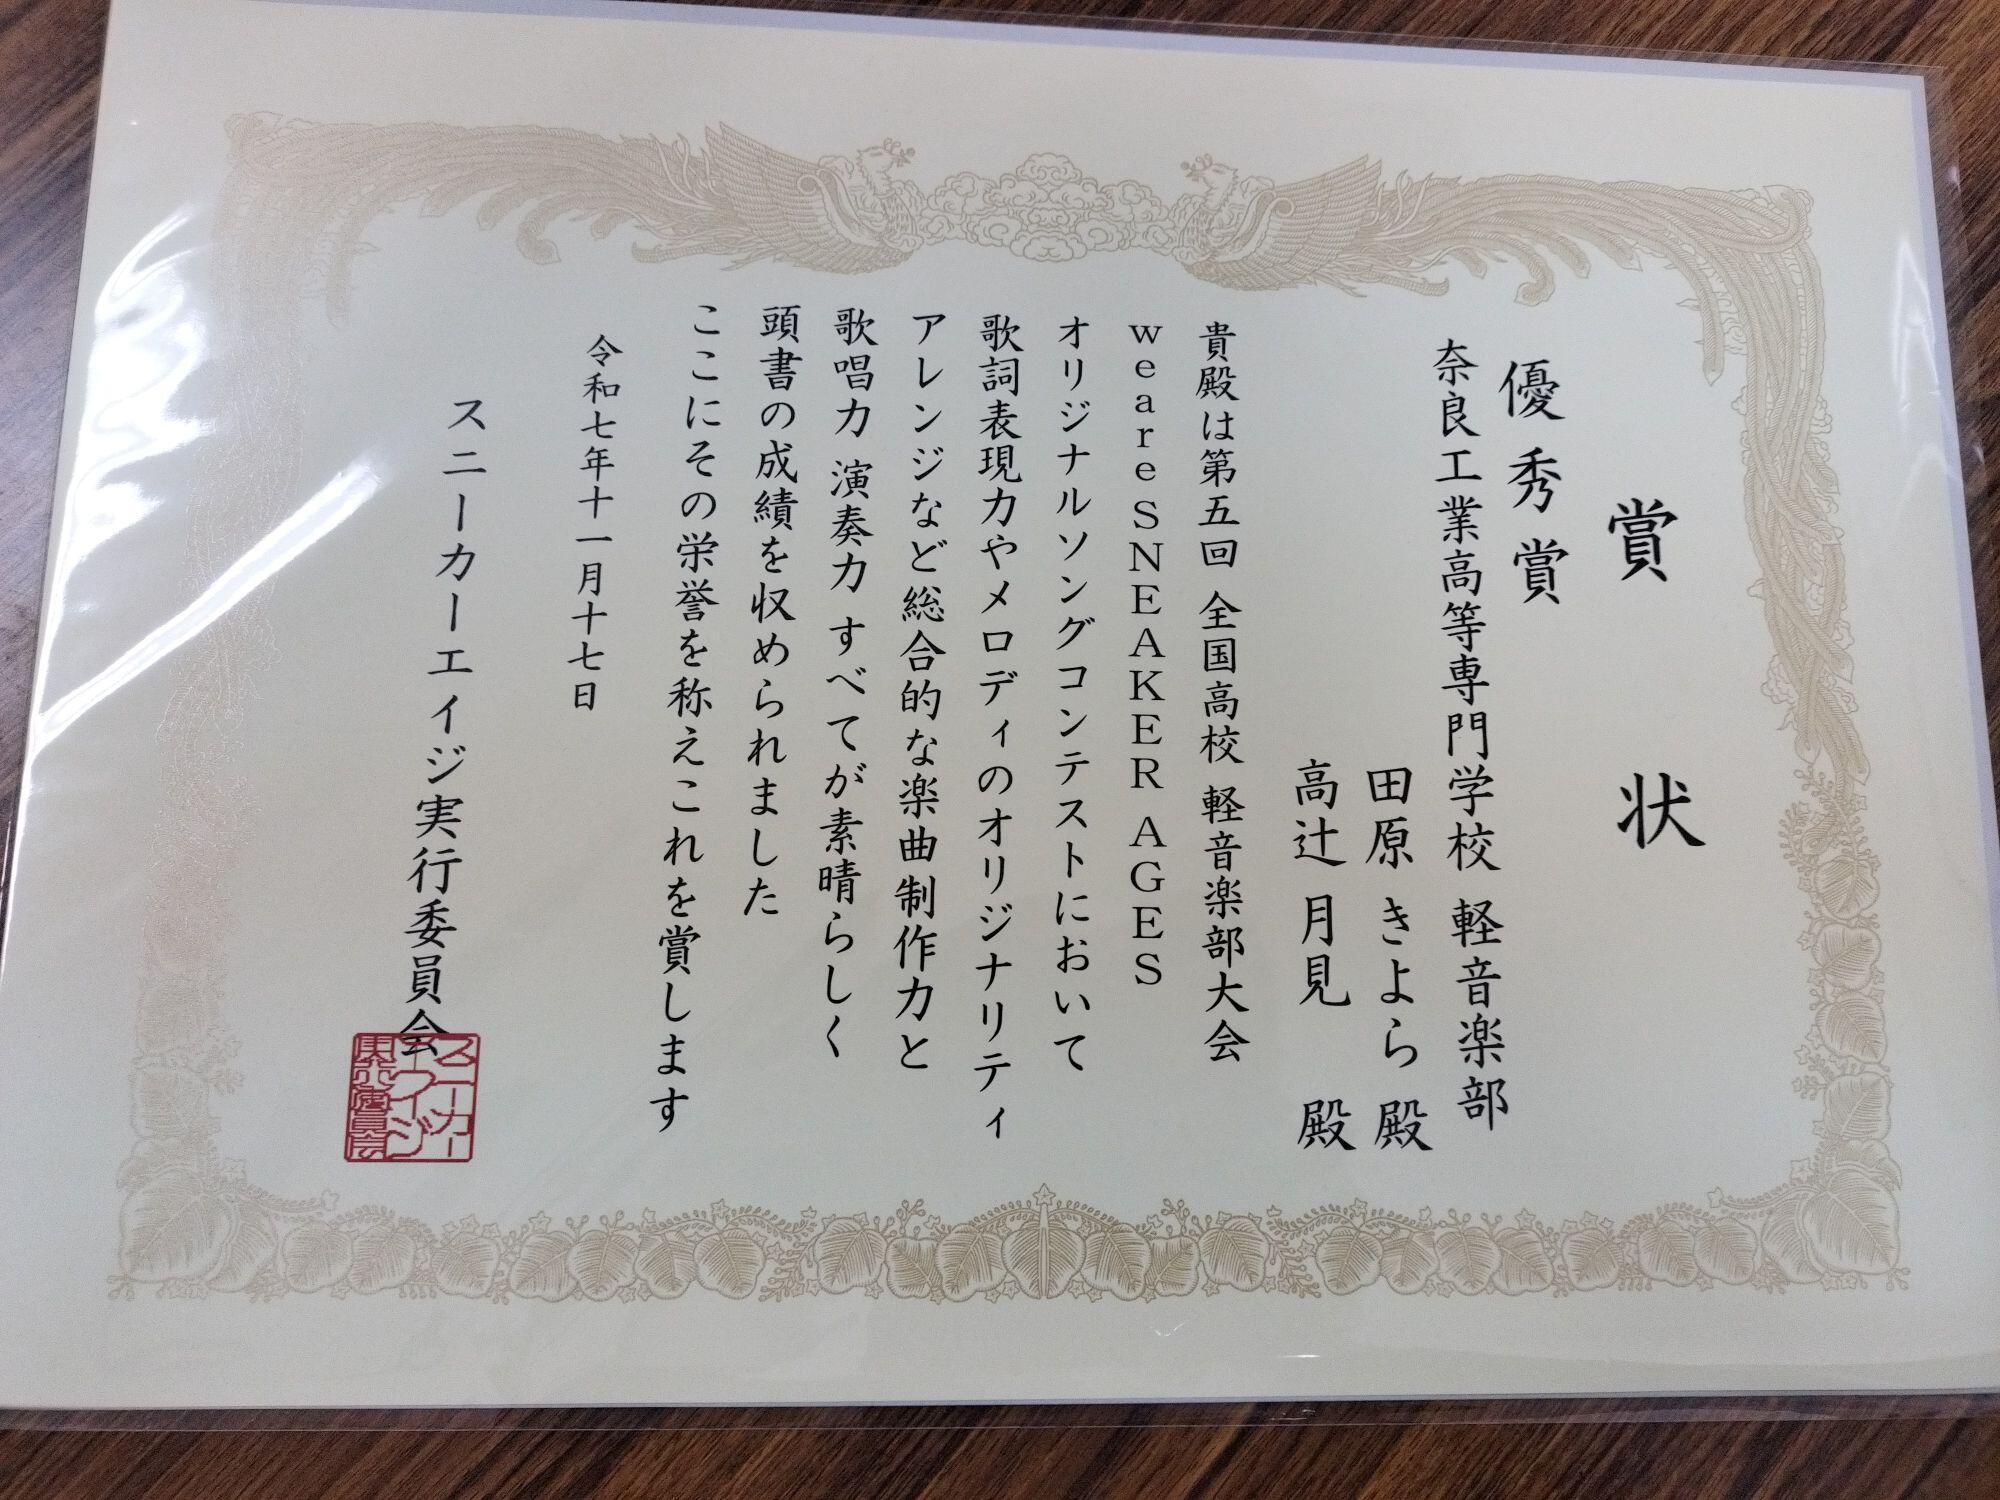 賞状
優秀賞
奈良工業高等専門学校 軽音楽部
田原 きよら 殿
高辻 月見 殿
貴殿は第五回 全国高校 軽音楽部大会
we are SNEAKER AGES
オリジナルソングコンテストにおいて
歌詞表現力やメロディのオリジナリティ
アレンジなど総合的な楽曲制作力と
歌唱力 演奏力 すべてが素晴らしく
頭書の成績を収められました
ここにその栄誉を称えこれを賞します
令和七年十一月十七日
スニーカーエイジ実行委員会
スニーカー
エイジ
実行委員会